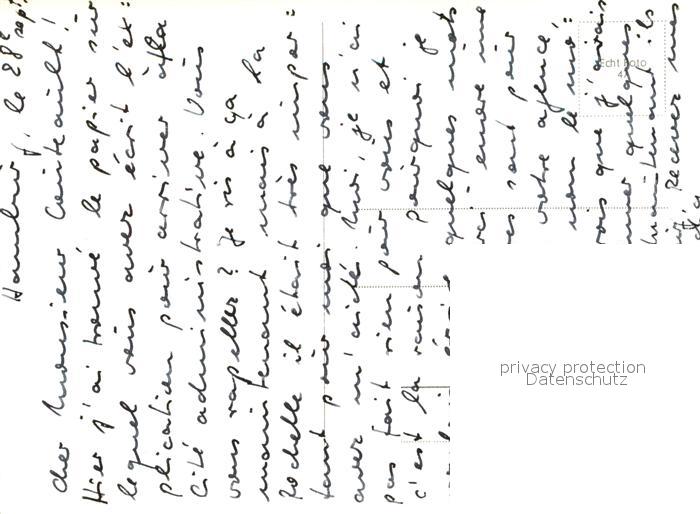 Hamburg, le 28e sept.
Cher Monsieur Centeault!
Hier j'ai trouvé le papier sur
lequel vous avez écrit l'ex=
plication pour arriver à la
Cité administrative. Vous
vous rapellez? Je ris à ça
maintenant mais à la
Rochelle il était très impor=
tant pour moi que vous
avez m'aidé. Moi, je n'ai
pas fait rien pour vous et
c'est la raison pourquoi je
quelques mots
encore une
es sont pour
votre agence,
mon le mo=
ois que j'avais
mer quelques
maintenant ils
Recevez mes
Echt Foto
privacy protection
Datenschutz